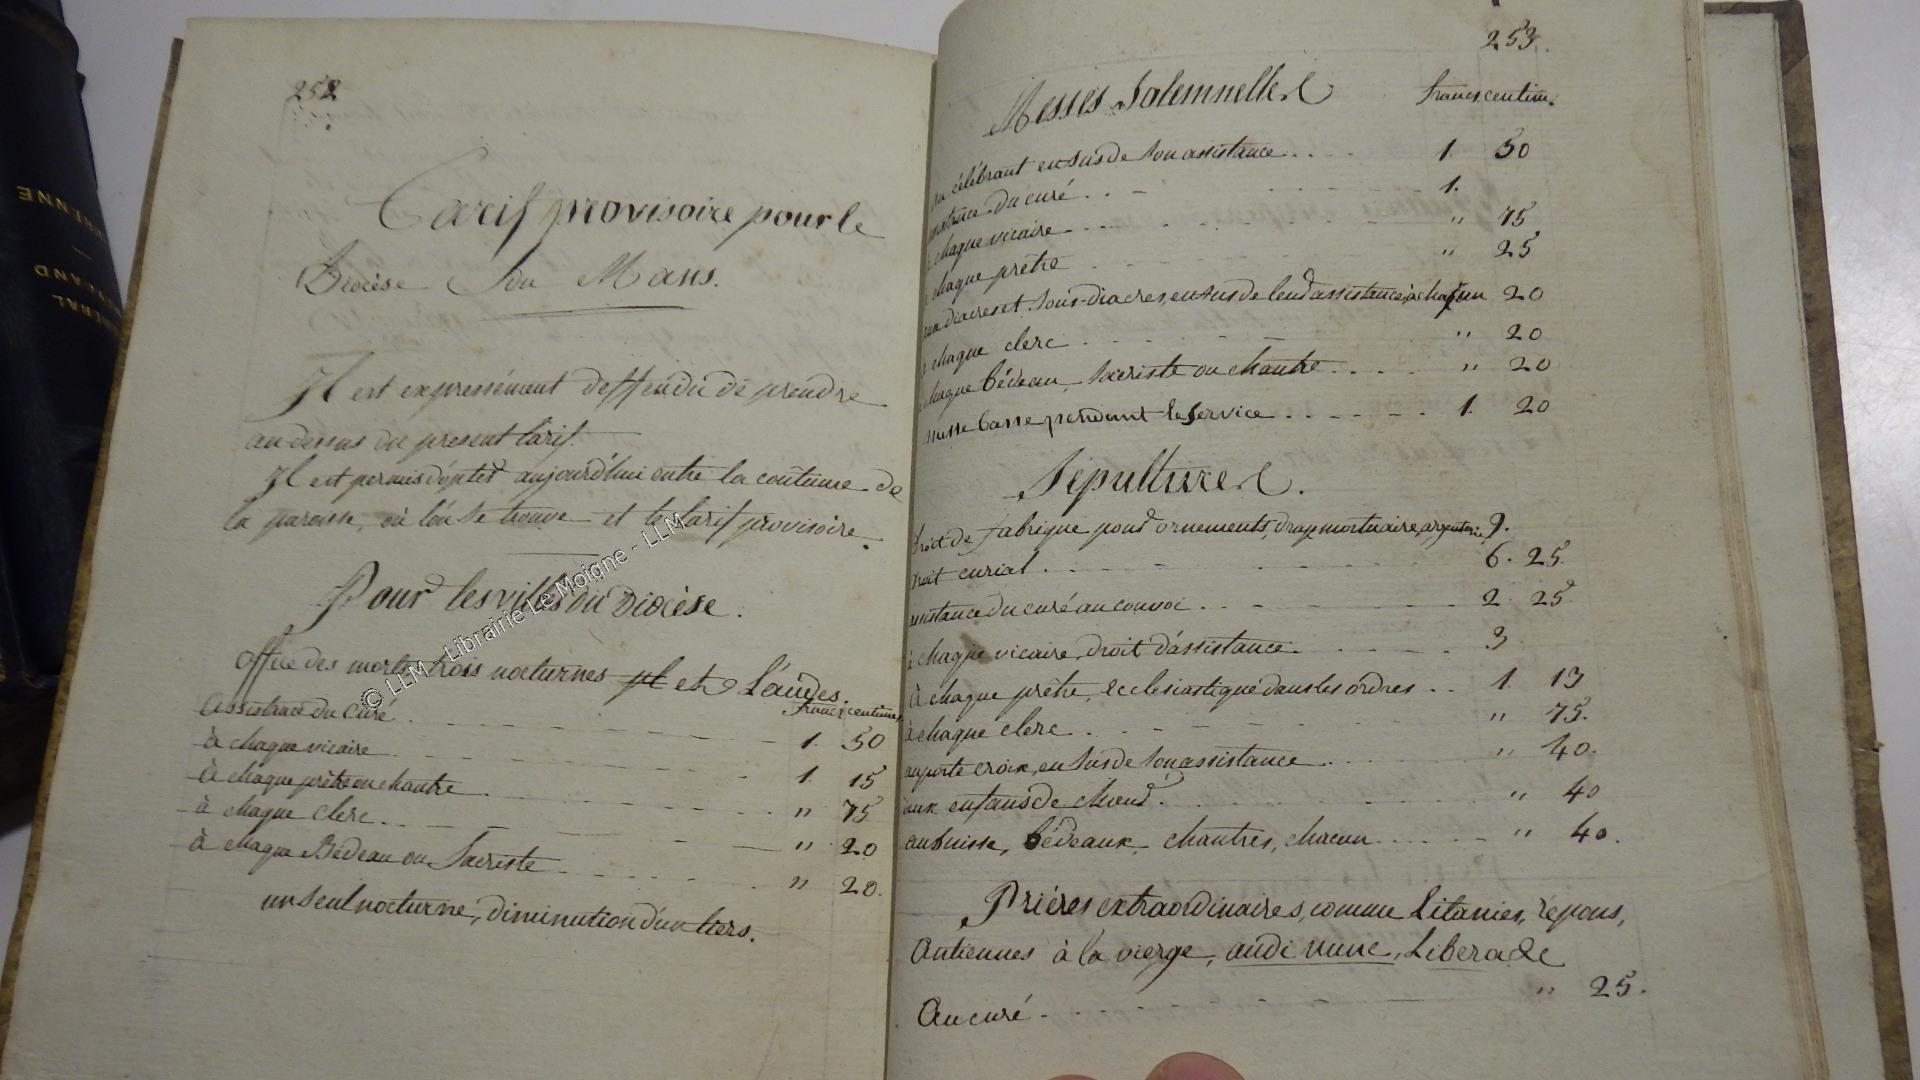 252
Tarif provisoire pour le
Diocèse du Mans.
Il est expressément deffendu de prendre
au-dessus du present tarif.
Il est permis d'opter aujourd'hui entre la coutume de
la paroisse, où l'on se trouve et le tarif provisoire.
Pour les villes du Diocèse.
office des morts trois nocturnes et Laudes.
francs centimes
Assistance du Curé 1. 50
à chaque vicaire 1. 15
à chaque prêtre ou chantre " 75
à chaque clerc " 20
à chaque Bédeau ou Sacriste " 20.
un seul nocturne, diminution d'un tiers.
253.
Messes Solemnelles
francs centim.
au célébrant en sus de son assistance 1. 50
assistance du curé 1.
à chaque vicaire " 75
à chaque prêtre " 25
aux diacres et sous-diacres, en sus de leur assistance, à chacun 20
à chaque clerc " 20
à chaque bédeau, sacriste ou chantre " 20
messe basse pendant le service 1. 20
Sépultures.
Droit de fabrique pour ornements, drap mortuaire, argenterie 9.
Droit curial 6. 25.
assistance du curé au convoi 2 25
à chaque vicaire, droit d'assistance 3
à chaque prêtre, ecclésiastique dans les ordres 1. 13
à chaque clerc " 75.
au porte croix, en sus de son assistance " 40.
aux enfans de chœur " 40
au suisse, bédeaux, chantres, chacun " 40.
Priéres extraordinaires, comme Litanies, répons,
Antiennes à la vierge, audi nunc, Libera &c
Au curé " 25.
© LLM - Librairie Le Moigne - LLM
GENERAL
ARMAND